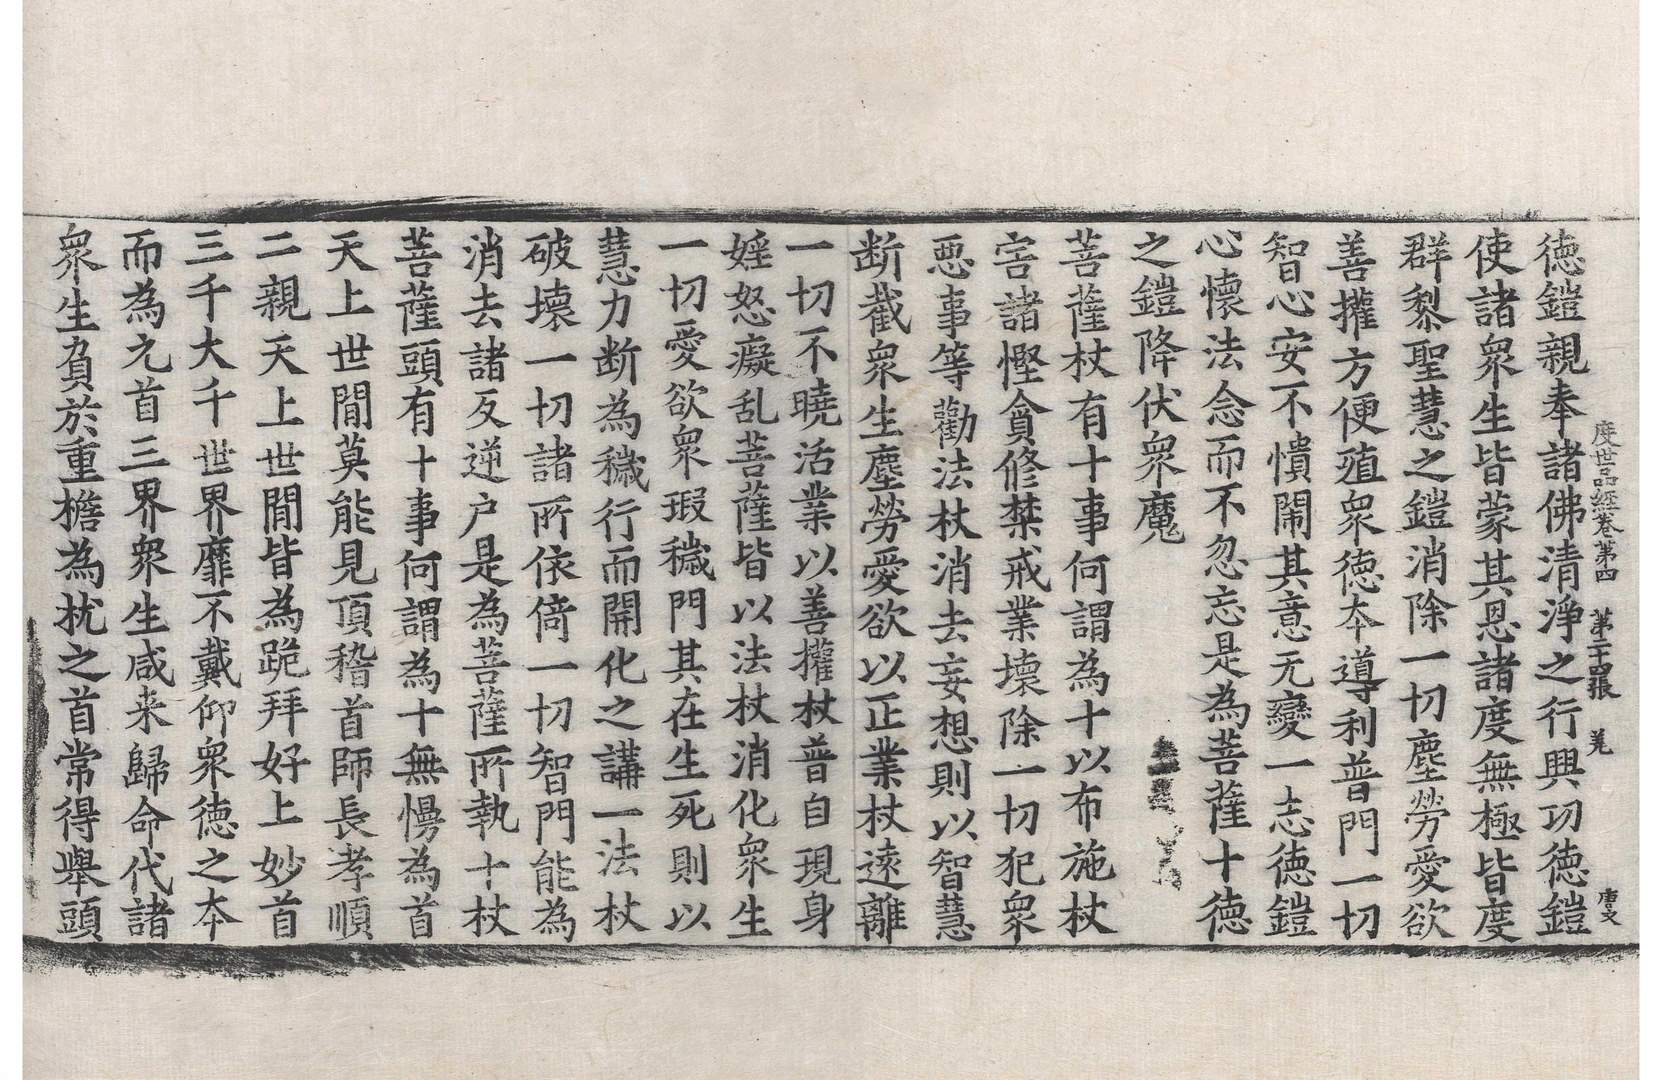 度世品經卷第四　第二十四張　羌　唐文
德鎧親奉諸佛清淨之行興功德鎧
使諸衆生皆蒙其恩諸度無極皆度
群黎聖慧之鎧消除一切塵勞愛欲
善權方便殖衆德本導利普門一切
智心安不憒閙其意无變一志德鎧
心懷法念而不忽忘是為菩薩十德
之鎧降伏衆魔
菩薩杖有十事何謂為十以布施杖
害諸慳貪修禁戒業壞除一切犯衆
惡事等勸法杖消去妄想則以智慧
断截衆生塵勞愛欲以正業杖遠離
一切不曉活業以善權杖普自現身
婬怒癡乱菩薩皆以法杖消化衆生
一切愛欲衆瑕穢門其在生死則以
慧力断為穢行而開化之講一法杖
破壞一切諸所依倚一切智門能為
消去諸反逆户是為菩薩所執十杖
菩薩頭有十事何謂為十無慢為首
天上世間莫能見頂稽首師長孝順
二親天上世間皆為跪拜好上妙首
三千大千世界靡不戴仰衆德之本
而為元首三界衆生咸来歸命代諸
衆生負於重檐為枕之首常得舉頭